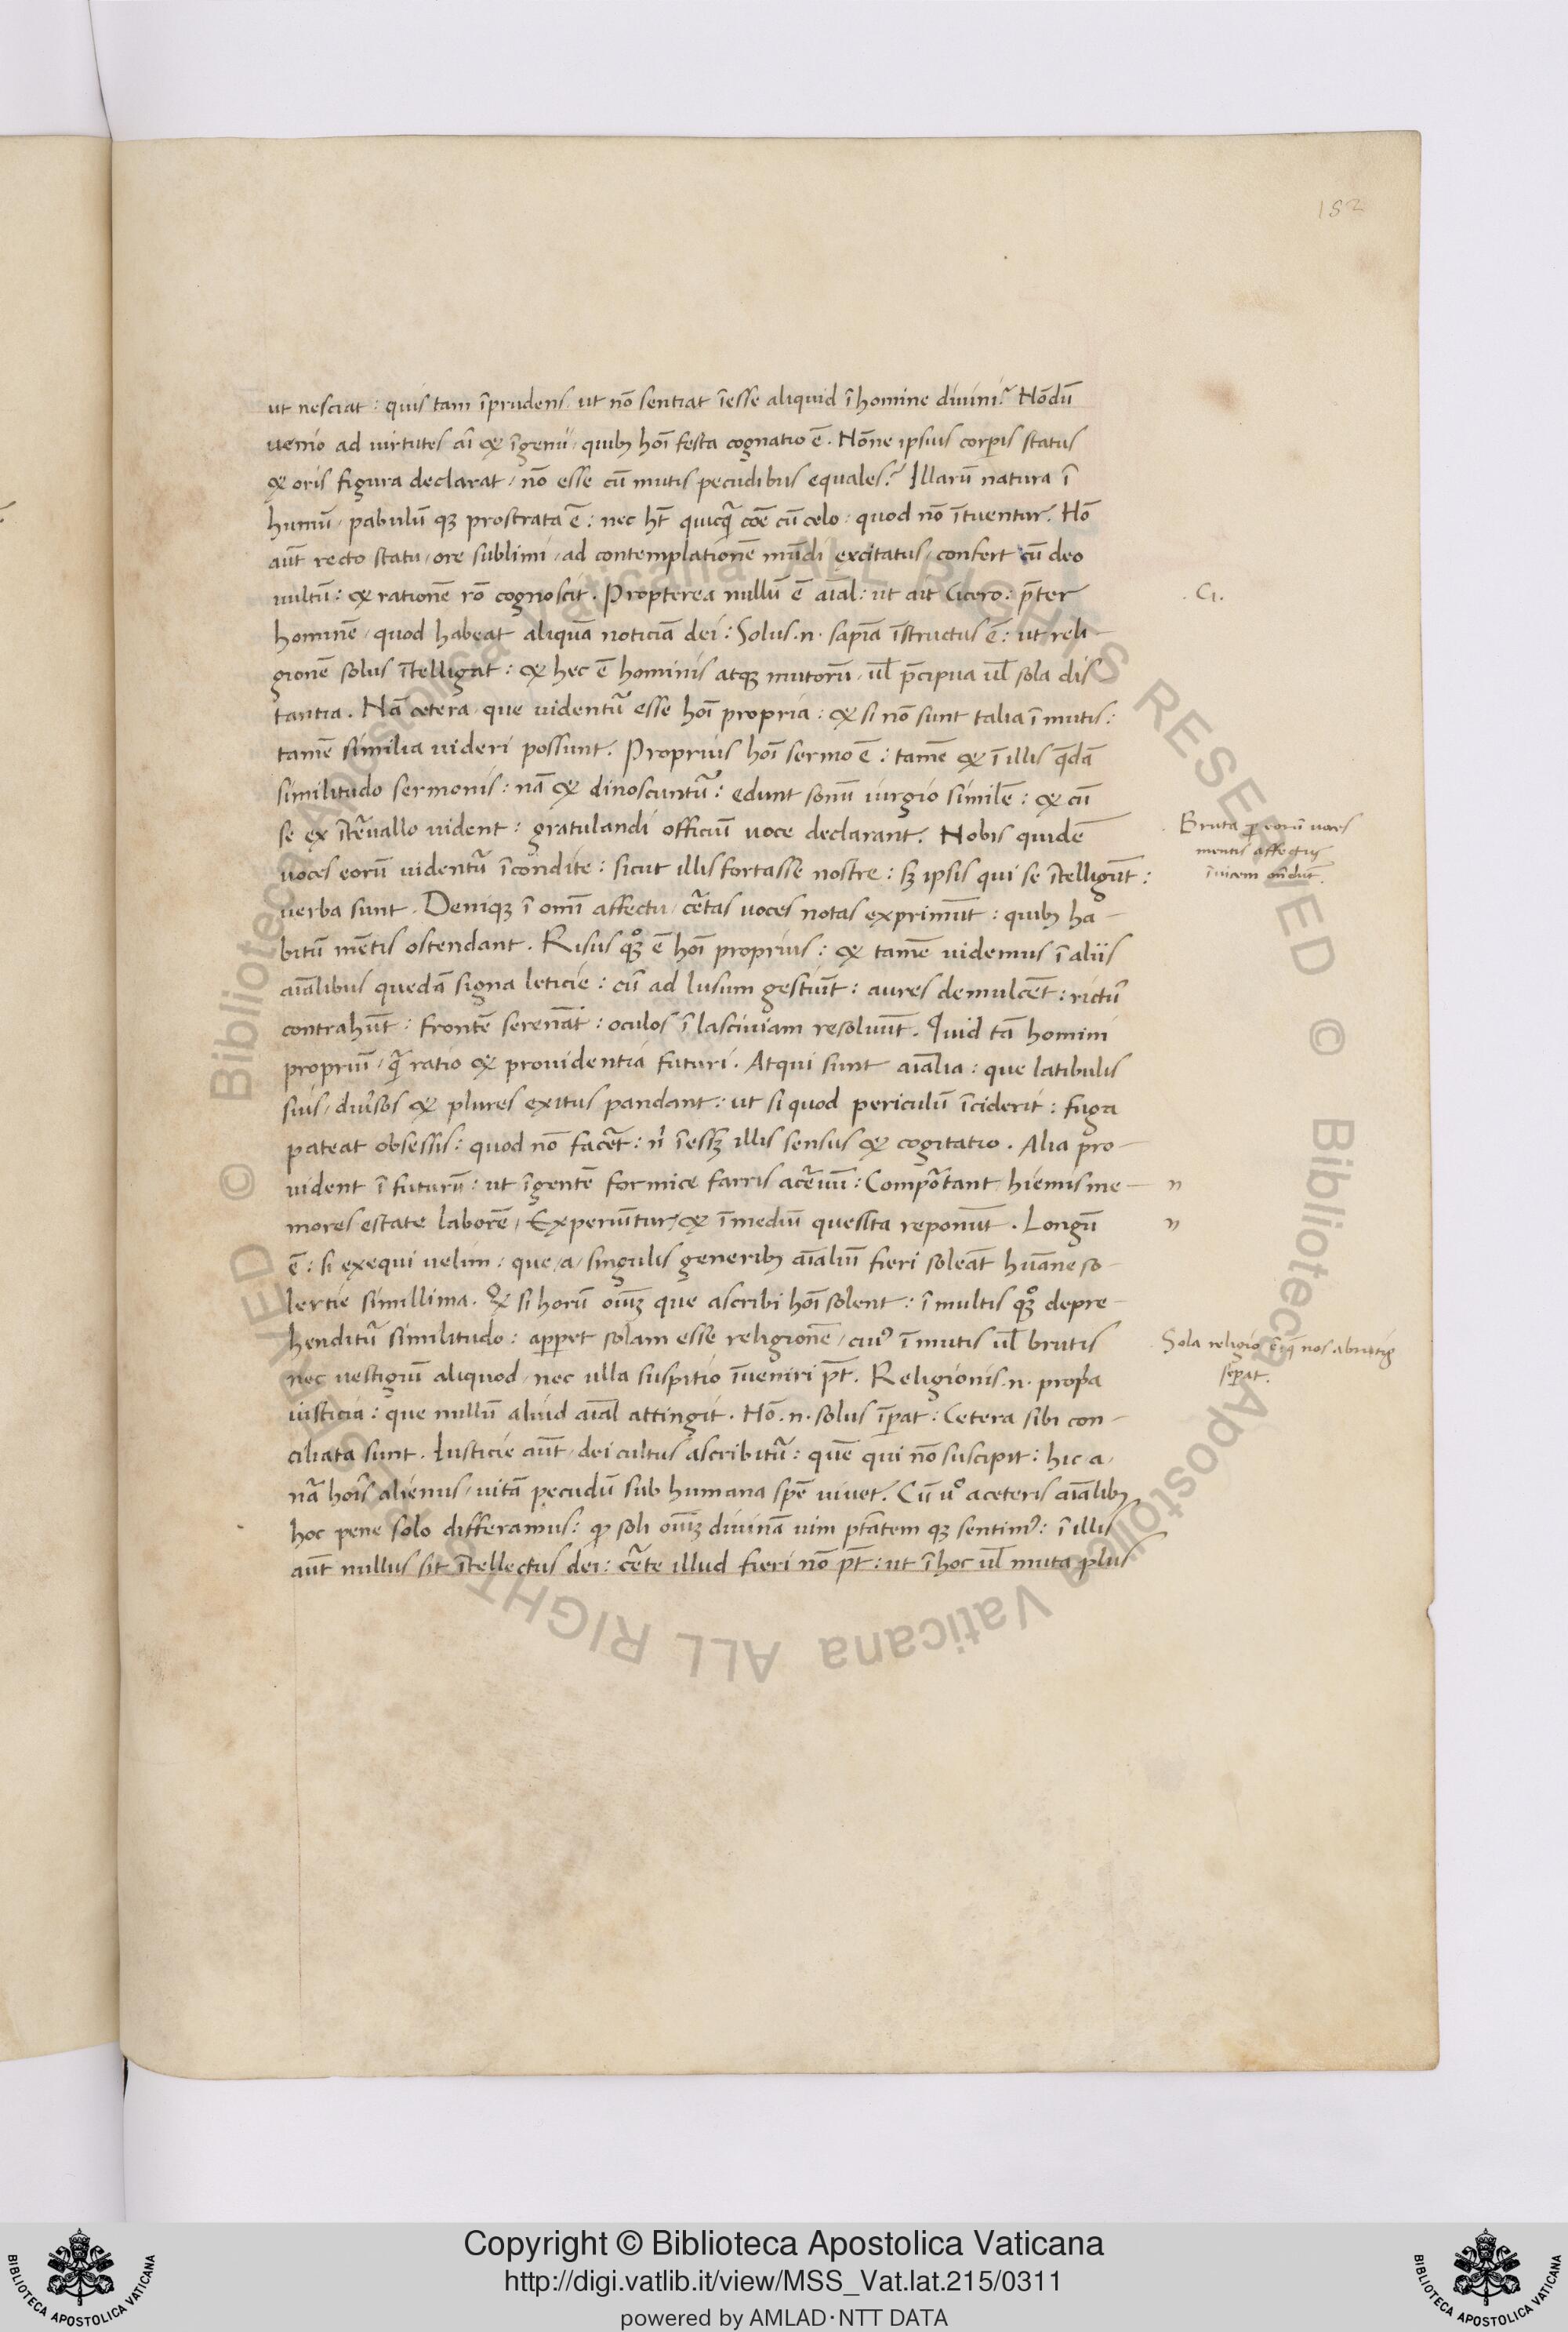 182
ut nesciat: quis tam īprudens, ut nō sentiat īesse aliquid ī homine diuini? Nōdū
uenio ad uirtutes aī & īgenii, quibꝫ hoī festa cognatio ē. Nōne ipsius corpis status
& oris figura declarat, nō esse cū mutis pecudibus equales? Illarū natura ī
humū, pabulū qꝫ prostrata ē: nec hꝫt quicq̄ cōe cū celo: quod nō ītuentur. Hō
aūt recto statu, ore sublimi, ad contemplationē mūdi excitatus, confert cū deo
uultū: & rationē rō cognoscit. Propterea nullū ē aīal: ut ait Cicero: p̄ter
hominē, quod habeat aliquā noticiā dei: Solus .n. sapīa īstructus ē: ut reli-
gionē solus ītelligat: & hec ē hominis atqꝫ mutorū, ul̄ p̄cipua ul̄ sola dis
tantia. Nā cetera, que uidentur̄ esse hoī propria: & si nō sunt talia ī mutis:
tamē similia uideri possunt. Proprius hoī sermo ē: tamē & ī illis q̄dā
similitudo sermonis: nā & dinoscuntur̄: edunt sonū iurgio similē: & cū
se ex īteruallo uident: gratulandi officiū uoce declarant. Nobis quidē
uoces eorū uidentur̄ īcondite: sicut illis fortasse nostre: sꝫ ipsis qui se ītelligūt:
uerba sunt. Deniqꝫ ī omī affectu, cētas uoces notas exprimūt: quibꝫ ha-
bitū mētis ostendant. Risus qꝫº ē hoī proprius: & tamē uidemus ī aliis
aīalibus quedā signa leticie: cū ad lusum gestiūt: aures demulcēt: rictū
contrahūt: frontē serenāt: oculos ī lasciuiam resoluūt. Quid tā homini
propriū, q̄ ratio & prouidentia futuri. Atqui sunt aīalia: que latibulis
suis, diuīsos & plures exitus pandant: ut si quod periculū īciderit: fuga
pateat obsessis: quod nō facēt: nͥ īessꝫ illis sensus & cogitatio. Alia pro-
uident ī futurū: ut īgentē formice farris acēuū: Comportant, hiemis me-
mores estate laborē, Experiūtur, & ī mediū quesita reponūt. Longū
ē: si exequi uelim: que, a, singulis generibꝫ aīaliū fieri soleāt hūane so-
lertie simillima. Qͩ si horū oīuꝫ que ascribi hoī solent: ī multis qꝫº depre-
henditur̄ similitudo: apparet solam esse religionē, cuiꝰ ī mutis ul̄ brutis
nec uestigiū aliquod, nec ulla suspitio īueniri pt̄. Religionis .n. propīa
iusticia: que nullū aliud aīal attingit. Hō .n. solus īpat: Cetera sibi con-
ciliata sunt. Iusticie aūt, dei cultus ascribitur̄: quē qui nō suscipit: hic a,
nā hoīs alienus, uitā pecudū sub humana spē uiuet. Cū uº a ceteris aīalibꝫ
hoc pene solo differamus: qͩ soli oīuꝫ diuinā uim ptātem qꝫ sentimꝰ: ī illis
aūt nullus sit ītellectus dei: cēte illud fieri nō pt̄: ut ī hoc ul̄ muta plus
. Ci.
Bruta ꝑ eorū uoces
mentis affectus
īuicem oñdūt.
n
n
Sola religio nos a brutis
sepat.
© Biblioteca Apostolica Vaticana ALL RIGHTS RESERVED © Biblioteca Apostolica Vaticana ALL RIGHTS RESERVED
BIBLIOTECA APOSTOLICA VATICANA
Copyright © Biblioteca Apostolica Vaticana
http://digi.vatlib.it/view/MSS_Vat.lat.215/0311
powered by AMLAD·NTT DATA
BIBLIOTECA APOSTOLICA VATICANA